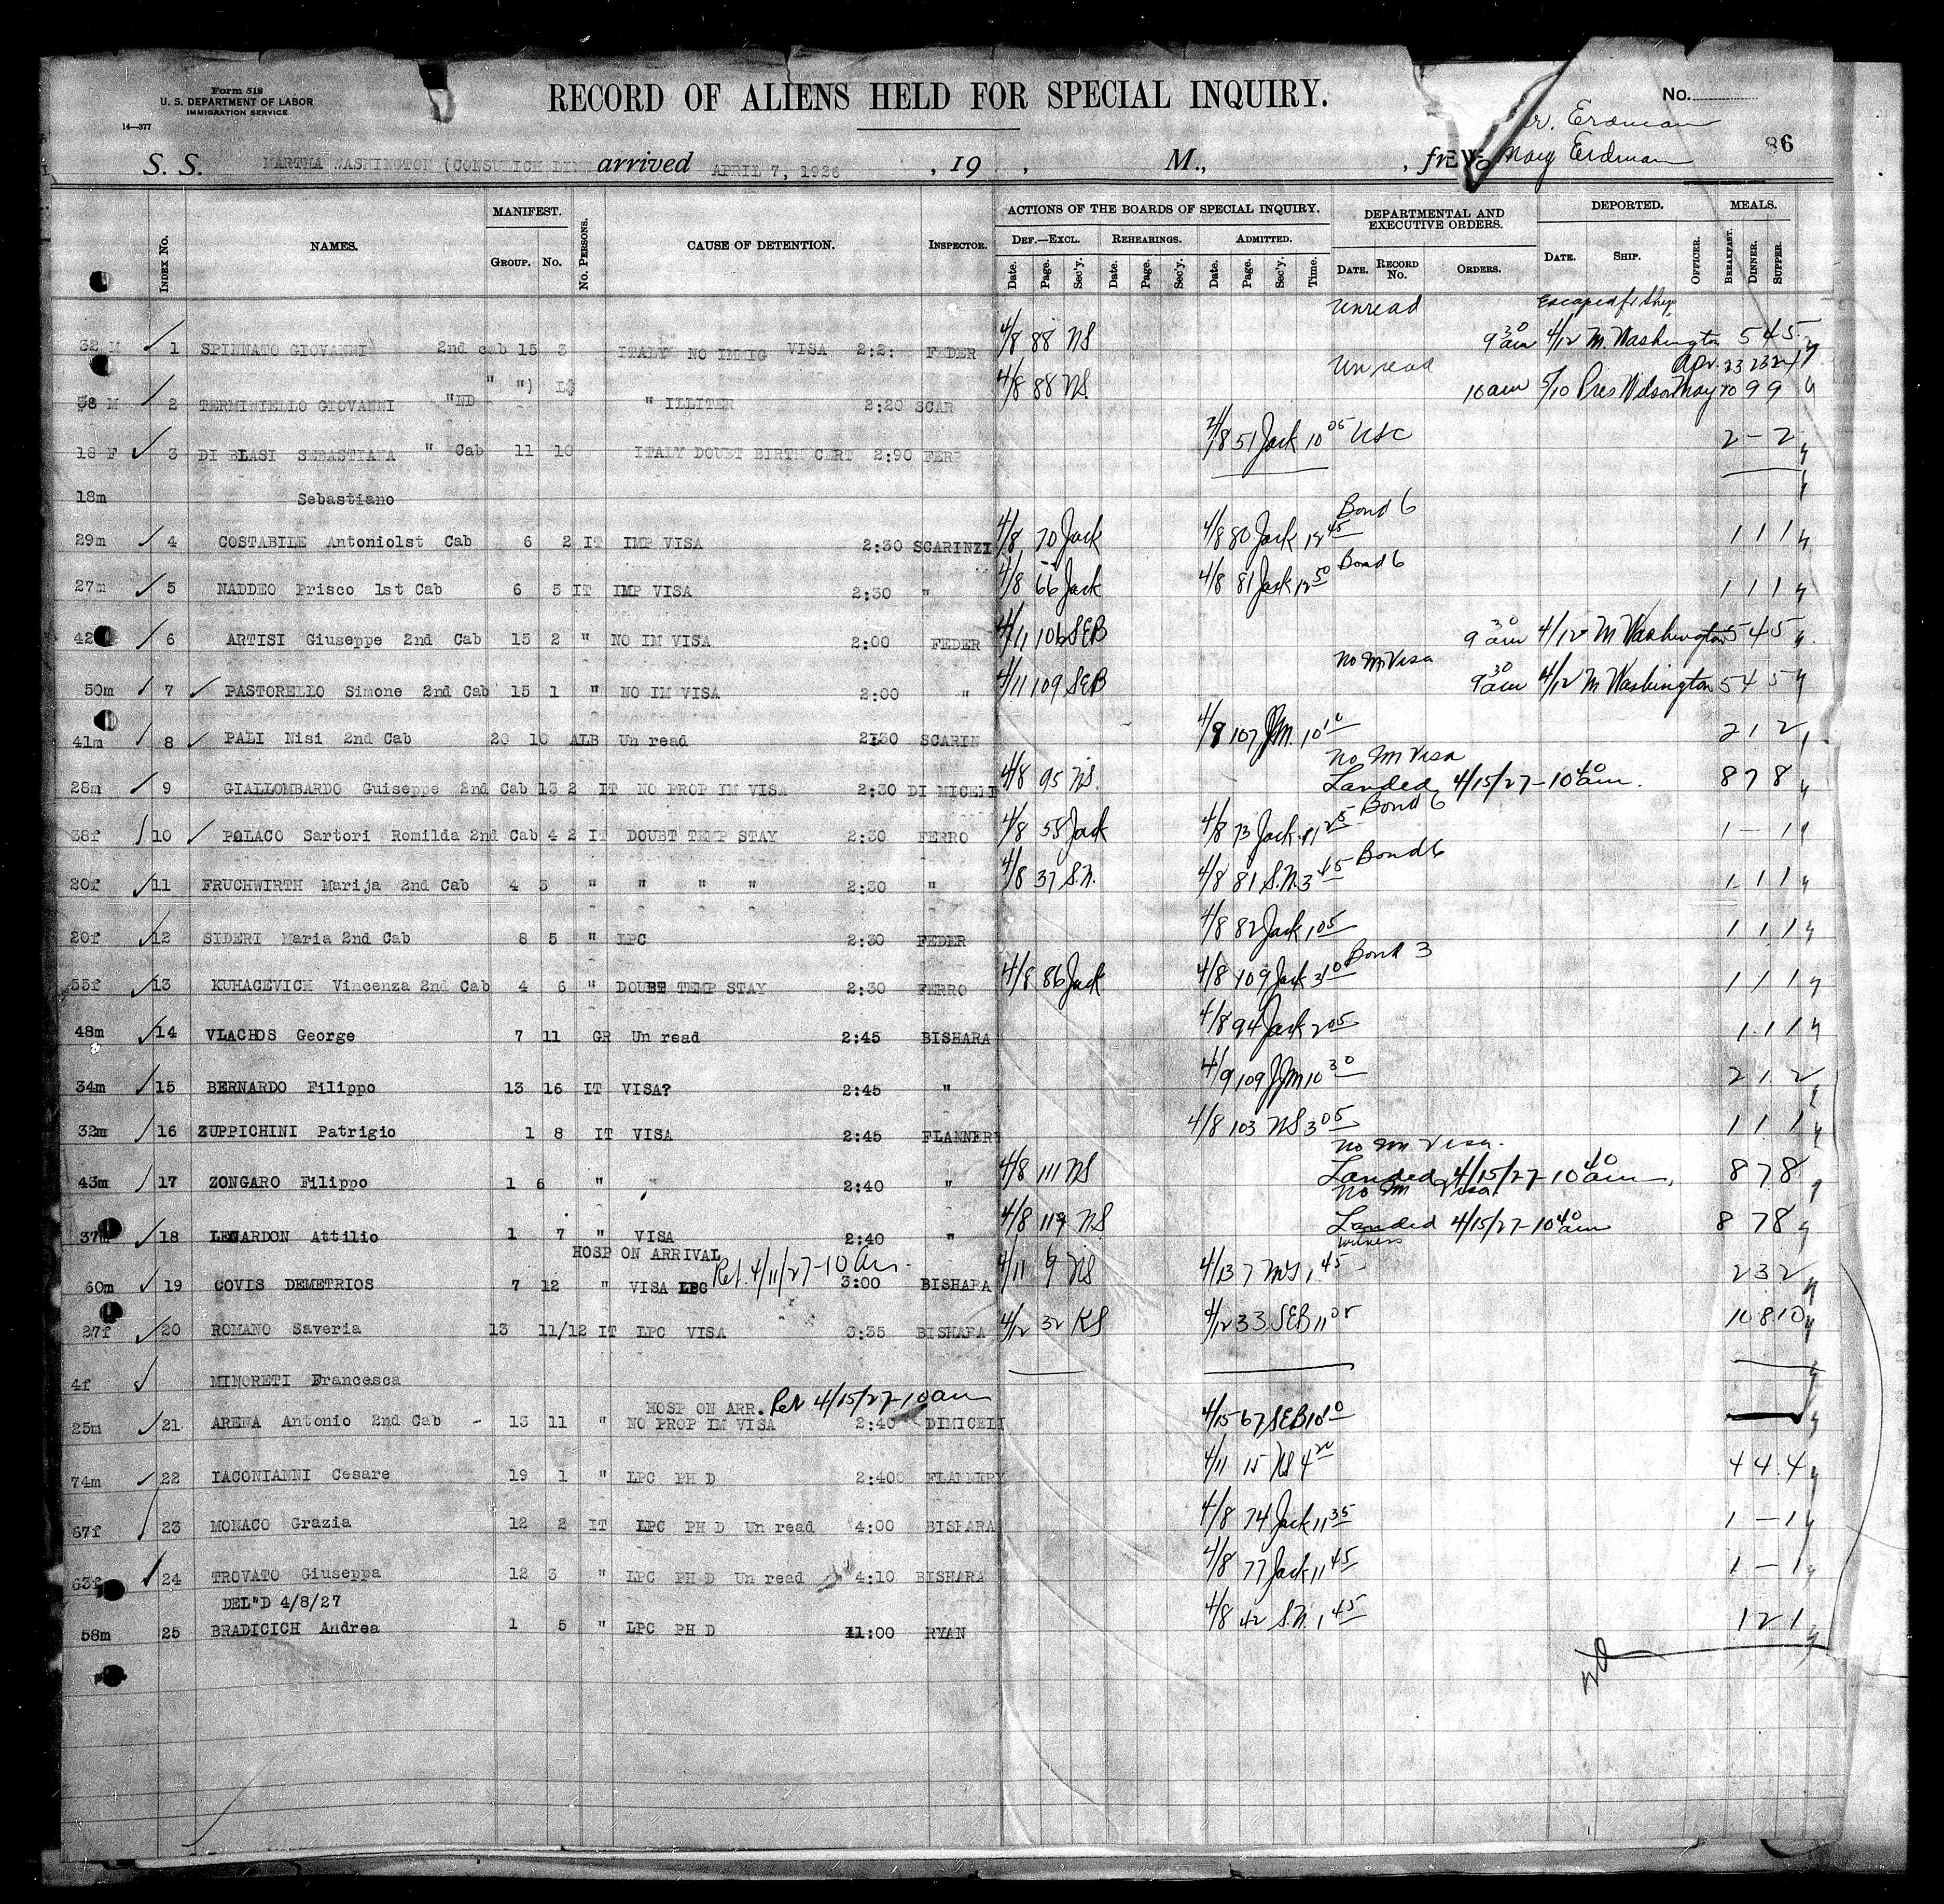 Form 518
U. S. DEPARTMENT OF LABOR
IMMIGRATION SERVICE
14—377
RECORD OF ALIENS HELD FOR SPECIAL INQUIRY.
No.
Erdman
S. S. MARTHA WASHINGTON (CONSULICH LINE arrived APRIL 7, 1926 , 19 , M., , fr Mary Erdman 86
INDEX No. NAMES. MANIFEST. GROUP. No. No. PERSONS. CAUSE OF DETENTION. INSPECTOR. ACTIONS OF THE BOARDS OF SPECIAL INQUIRY. DEF.—EXCL. REHEARINGS. ADMITTED. DEPARTMENTAL AND EXECUTIVE ORDERS. DEPORTED. MEALS.
Date. Page. Sec'y. Date. Page. Sec'y. Date. Page. Sec'y. Time. DATE. RECORD No. ORDERS. DATE. SHIP. OFFICER. BREAKFAST. DINNER. SUPPER.
Unread Escaped fr Ship
32 M 1 SPINNATO GIOVANNI 2nd cab 15 3 ITALY NO IMMIG VISA 2:2: FEDER 4/8 88 NS 9 30 am 4/12 M. Washington 5 4 5
Unread Apr. 23 23 24
38 M 2 TERMINIELLO GIOVANNI "ND " ") " ILLITER 2:20 SCAR 4/8 88 NS 10 am 5/10 Pres Wilson May 10 9 9
18 F 3 DI BLASI SEBASTIANA " Cab 11 10 ITALY DOUBT BIRTH CERT 2:90 FERR 51 Jack 10 05 USC 2 – 2
18m Sebastiano
Bond 6
29m 4 COSTABILE Antonio1st Cab 6 2 IT IMP VISA 2:30 SCARINZI 4/8 70 Jack 4/8 80 Jack 12 45 1 1 1
Bond 6
27m 5 NADDEO Prisco 1st Cab 6 5 IT IMP VISA 2:30 " 4/8 66 Jack 4/8 81 Jack 12 50 1 1 1
42 6 ARTISI Giuseppe 2nd Cab 15 2 " NO IM VISA 2:00 FEDER 4/11 106 SEB 9 30 am 4/12 M Washington 5 4 5
No Im Visa
50m 7 PASTORELLO Simone 2nd Cab 15 1 " NO IM VISA 2:00 " 4/11 109 SEB 9 30 am 4/12 M Washington 5 4 5
41m 8 PALI Nisi 2nd Cab 20 10 ALB Un read 2:30 SCARIN 4/9 107 JJM. 10 10 2 1 2
No Im Visa
28m 9 GIALLOMBARDO Guiseppe 2nd Cab 13 2 IT NO PROP IM VISA 2:30 DI MICELI 4/8 95 NS. Landed 4/15/27–10 40 am. 8 7 8
Bond 6
38f 10 POLACO Sartori Romilda 2nd Cab 4 2 IT DOUBT TEMP STAY 2:30 FERRO 4/8 58 Jack 4/8 73 Jack 11 25 1 – 1
Bond 6
20f 11 FRUCHWIRTH Marija 2nd Cab 4 3 " " " " 2:30 " 4/8 37 S.N. 4/8 81 S.N. 3 45 1 1 1
20f 12 SIDERI Maria 2nd Cab 8 5 " LPC 2:30 FEDER 4/8 82 Jack 1 05 1 1 1
Bond 3
55f 13 KUHACEVICH Vincenza 2nd Cab 4 6 " DOUBT TEMP STAY 2:30 FERRO 4/8 86 Jack 4/8 109 Jack 3 10 1 1 1
48m 14 VLACHOS George 7 11 GR Un read 2:45 BISHARA 4/8 94 Jack 2 05 1 1 1
34m 15 BERNARDO Filippo 13 16 IT VISA? 2:45 " 4/9 109 JJM 10 30 2 1 2
32m 16 ZUPPICHINI Patrigio 1 8 IT VISA 2:45 FLANNERY 4/8 103 NS 3 05 1 1 1
No Im Visa.
43m 17 ZONGARO Filippo 1 6 " " 2:40 " 4/8 111 NS Landed 4/15/27–10 40 am. 8 7 8
No Im Visa.
37m 18 LENARDON Attilio 1 7 " VISA 2:40 " 4/8 NS Landed 4/15/27–10 40 am 8 7 8
HOSP ON ARRIVAL Ret. 4/11/27–10 am.
60m 19 COVIS DEMETRIOS 7 12 " VISA LPC 3:00 BISHARA 4/11 9 NS 4/13 7 1 45 2 3 2
27f 20 ROMANO Saveria 13 11/12 IT LPC VISA 3:35 BISHARA 4/12 32 KS 4/12 33 SEB 11 05 10 8 10
4f MINORETI Francesca
HOSP ON ARR. Ret 4/15/27–10 am
25m 21 ARENA Antonio 2nd Cab 13 11 " NO PROP IM VISA 2:40 DIMICELI 4/15 67 SEB
74m 22 IACONIANNI Cesare 19 1 " LPC PH D 2:40 FLANNERY 4/11 15 NS 4 20 4 4 4
67f 23 MONACO Grazia 12 2 IT LPC PH D Un read 4:00 BISHARA 4/8 74 Jack 11 35 1 – 1
63f 24 TROVATO Giuseppa 12 3 " LPC PH D Un read 4:10 BISHARA 4/8 77 Jack 11 45 1 – 1
DEL"D 4/8/27
58m 25 BRADICICH Andrea 1 5 " LPC PH D 11:00 RYAN 4/8 42 S.N. 1 45 1 2 1